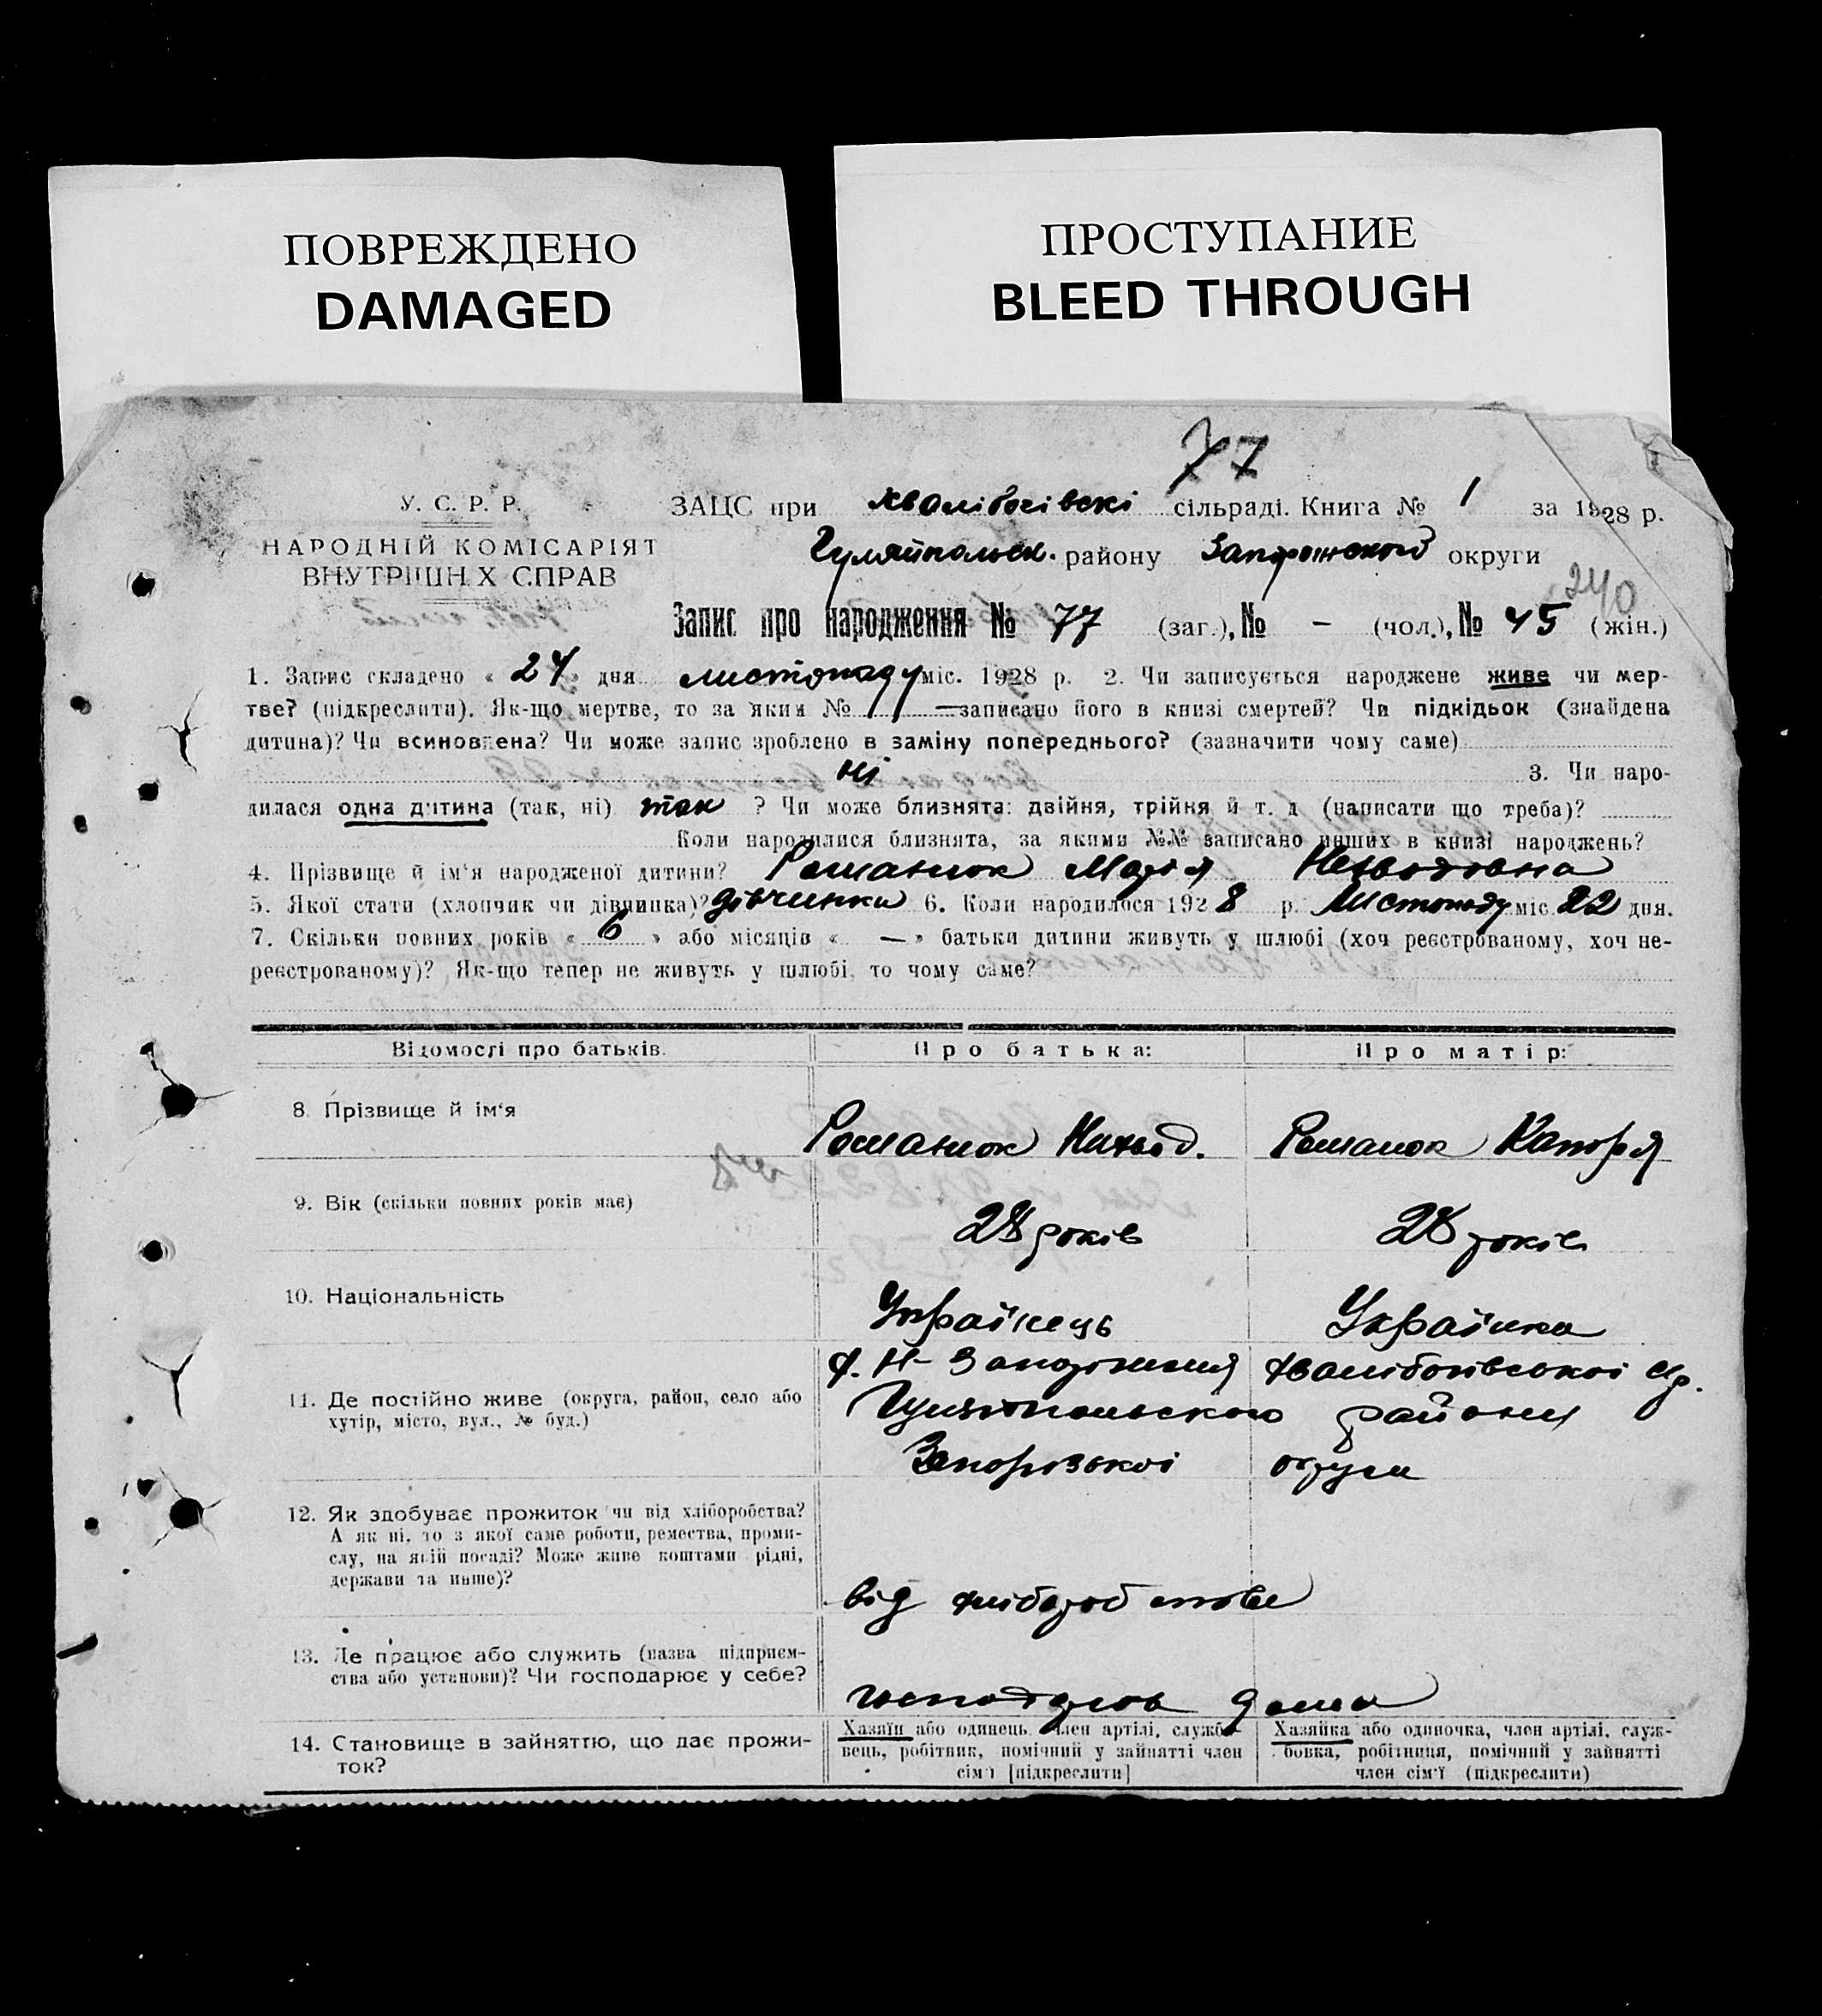 ПОВРЕЖДЕНО
DAMAGED
ПРОСТУПАНИЕ
BLEED THROUGH
77
У. С. Р. Р.
НАРОДНІЙ КОМІСАРІЯТ
ВНУТРІШН Х СПРАВ
ЗАЦС при Хвалібогівскі сільраді. Книга № 1 за 1928 р.
Гуляйпольск. району Запорожской округи
240
Запис про народження № 77 (заг.), № – (чол.), № 45 (жін.)
1. Запис складено « 24 » дня листопаду міс. 1928 р. 2. Чи записується народжене живе чи мер-
тве? (підкреслити). Як-що мертве, то за яким № — записано його в книзі смертей? Чи підкідьок (знайдена
дитина)? Чи всиновлена? Чи може запис зроблено в заміну попереднього? (зазначити чому саме)
ні 3. Чи наро-
дилася одна дитина (так, ні) так ? Чи може близнята: двійня, трійня й т. д (написати що треба)?
Коли народилися близнята, за якими №№ записано инших в книзі народжень?
4. Прізвище й ім'я народженої дитини? Романюк Марія
5. Якої стати (хлопчик чи дівчинка)? дівчинка 6. Коли народилося 1928 р. Листопаду міс. 22 дня.
7. Скільки повних років « 6 » або місяців « — » батьки дитини живуть у шлюбі (хоч реєстрованому, хоч не-
реєстрованому)? Як-що тепер не живуть у шлюбі, то чому саме?
Відомості про батьків.
Про батька:
Про матір:
8. Прізвище й ім'я
Романюк
Романюк
9. Вік (скільки повних років має)
28 років
28 років
10. Національність
Українець
Українка
11. Де постійно живе (округа, район, село або
хутір, місто, вул., № буд.)
Хвалібогівської с/р.
Гуляйпольського району
Запорізької округи
12. Як здобуває прожиток чи від хліборобства?
А як ні, то з якої саме роботи, ремества, проми-
слу, на якій посаді? Може живе коштами рідні,
держави та инше)?
від хліборобства
13. Де працює або служить (назва підприєм-
ства або установи)? Чи господарює у себе?
дома
14. Становище в зайняттю, що дає прожи-
ток?
Хазяїн або одинець, член артілі, службо-
вець, робітник, помічний у зайнятті член
сім'ї [підкреслити]
Хазяйка або одиночка, член артілі, служ-
бовка, робітниця, помічний у зайнятті
член сім'ї (підкреслити)